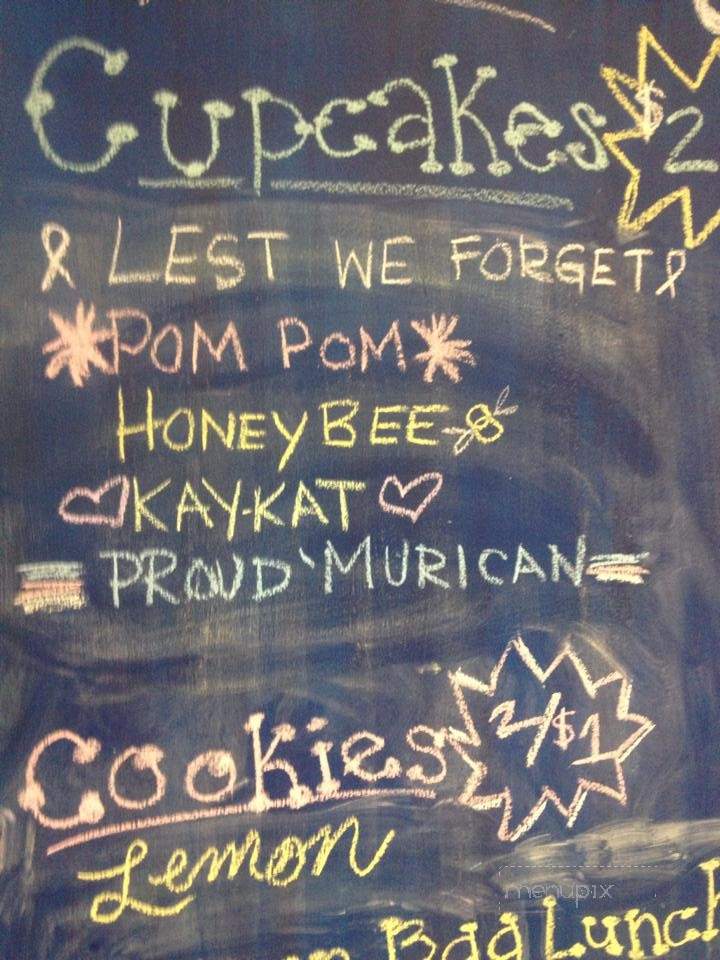 Cupcakes $2
LEST WE FORGET
POM POM
HONEY BEE
KAY-KAT
PROUD 'MURICAN
Cookies 2/$1
Lemon
Bag Lunch
menupix